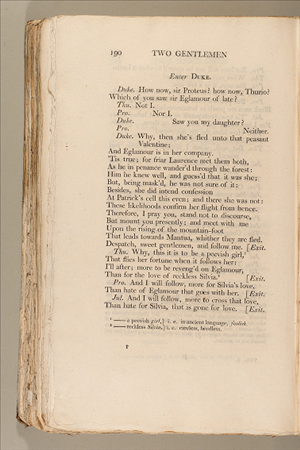 190 TWO GENTLEMEN
Enter DUKE.
Duke. How now, sir Proteus? how now, Thurio?
Which of you saw sir Eglamour of late?
Thu. Not I.
Pro. Nor I.
Duke. Saw you my daughter?
Pro. Neither.
Duke. Why, then she's fled unto that peasant
Valentine;
And Eglamour is in her company.
'Tis true; for friar Laurence met them both,
As he in penance wander'd through the forest:
Him he knew well, and guess'd that it was she;
But, being mask'd, he was not sure of it:
Besides, she did intend confession
At Patrick's cell this even; and there she was not:
These likelihoods confirm her flight from hence.
Therefore, I pray you, stand not to discourse,
But mount you presently; and meet with me
Upon the rising of the mountain-foot
That leads towards Mantua, whither they are fled.
Despatch, sweet gentlemen, and follow me. [Exit.
Thu. Why, this it is to be a peevish girl,¹
That flies her fortune when it follows her:
I'll after; more to be reveng'd on Eglamour,
Than for the love of reckless Silvia.² [Exit.
Pro. And I will follow, more for Silvia's love,
Than hate of Eglamour that goes with her. [Exit.
Jul. And I will follow, more to cross that love,
Than hate for Silvia, that is gone for love. [Exit.
¹ —— a peevish girl,] i. e. in ancient language, foolish
² —— reckless Silvia,] i. e. careless, heedless.